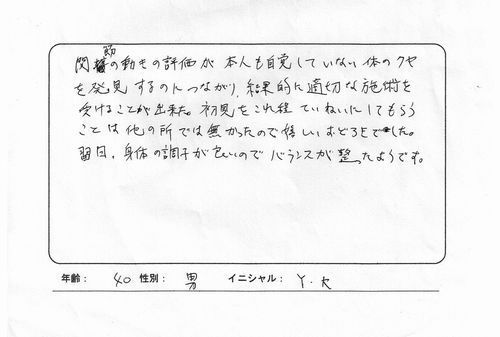 関節の動きの評価が本人も自覚していない体のクセ
を発見するのにつながり、結果的に適切な施術を
受けることが出来た。初見をこれ程ていねいにしてもらう
ことは他の所では無かったので嬉しいおどろきでした。
翌日、身体の調子が良いのでバランスが整ったようです。
年齢： 40 性別： 男 イニシャル： Y.K